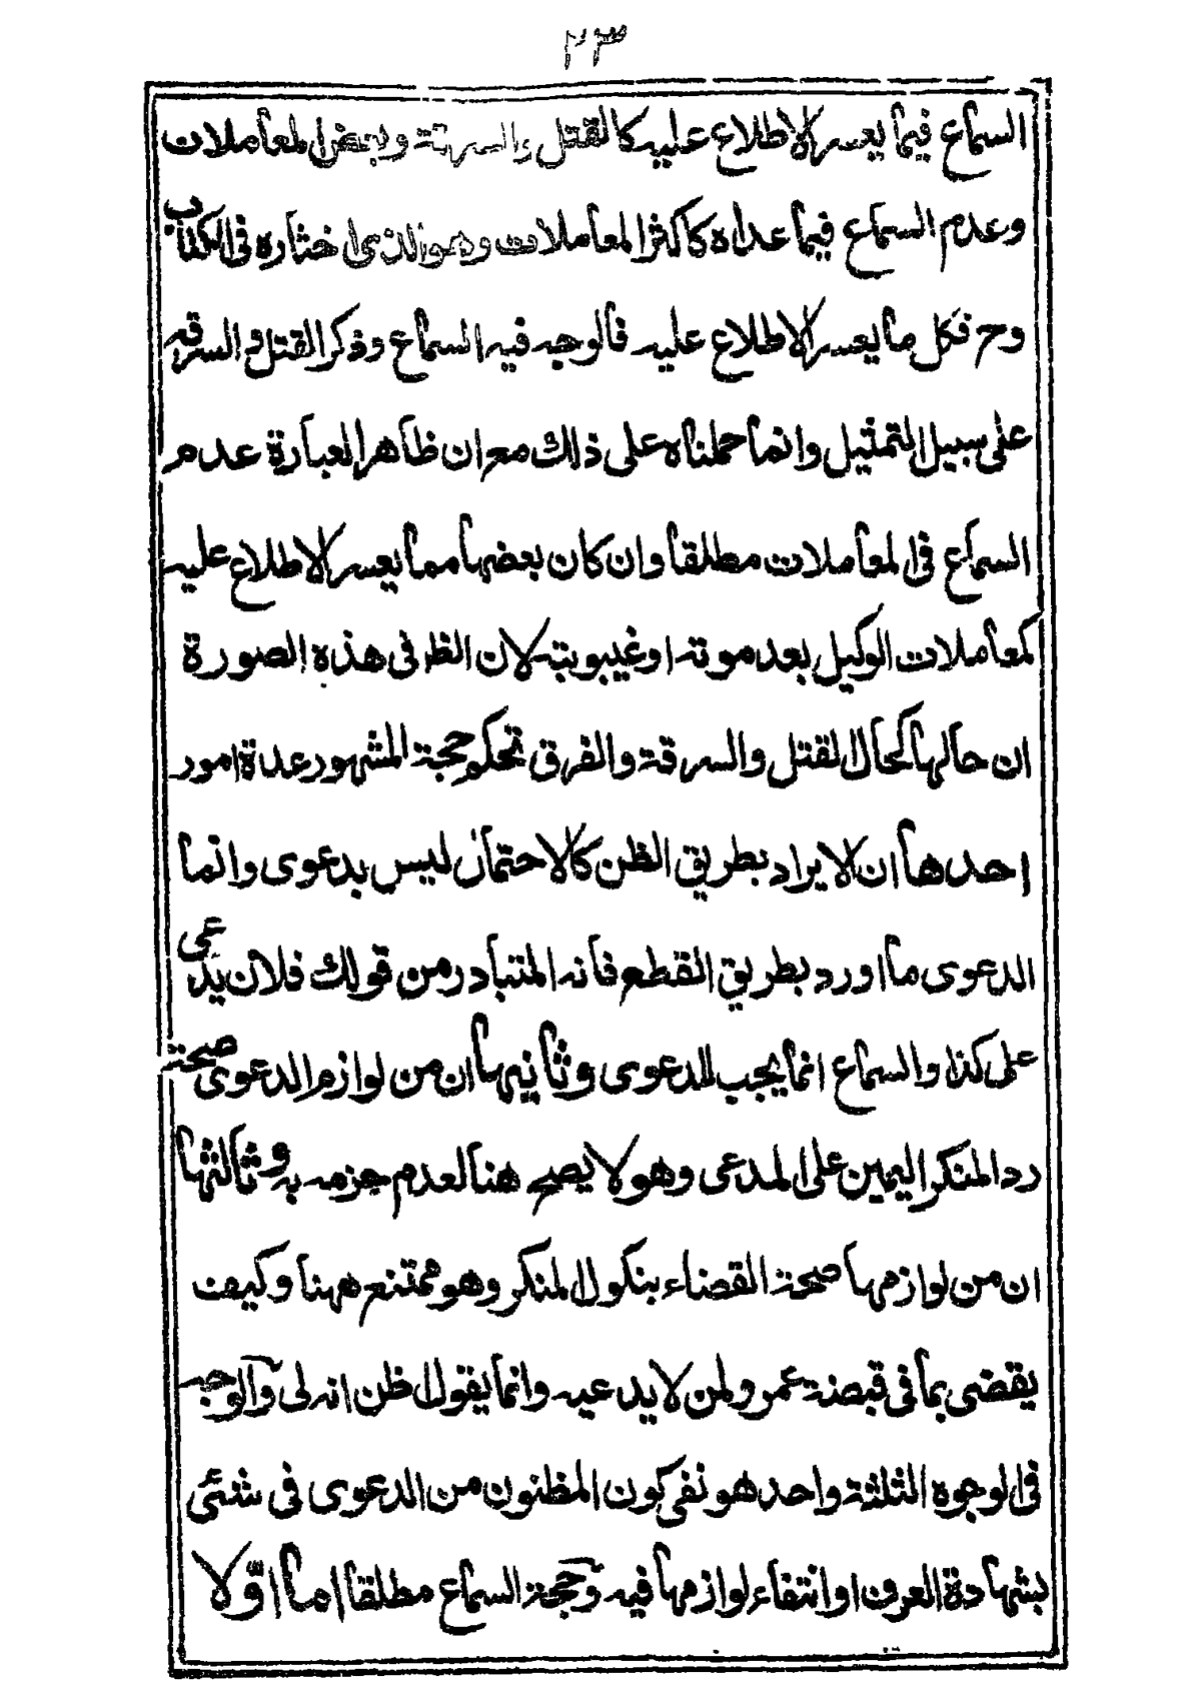 ٢٣
السماع فيما يعسر الاطلاع عليه كالقتل والسرقة وبعض المعاملات
وعدم السماع فيما عداه كاكثر المعاملات وهو الذى اختاره فى الكتاب
وح فكل ما يعسر الاطلاع عليه فالوجه فيه السماع وذكر القتل والسرقه
على سبيل التمثيل وانما حملناه على ذلك مع ان ظاهر العبارة عدم
السماع فى المعاملات مطلقا وان كان بعضها مما يعسر الاطلاع عليه
كمعاملات الوكيل بعد موته او غيبوبته لان الظ فى هذه الصورة
ان حالها كحال القتل والسرقة والفرق تحكم حجة المشهور عدة امور
احدها ان الايراد بطريق الظن كالاحتمال ليس بدعوى وانما
الدعوى ما اورد بطريق القطع فانه المتبادر من قولك فلان يدعى
على كذا والسماع انما يجب للدعوى وثانيها ان من لوازم الدعوى صحة
رد المنكر اليمين على المدعى وهو لا يصح هنا لعدم جزمه به وثالثها
ان من لوازمها صحة القضاء بنكول المنكر وهو ممتنع ههنا وكيف
يقضى بما فى قبضة عمر ولمن لا يدعيه وانما يقول اظن انه لى والوجه
فى الوجوه الثلثة واحد هو نفى كون المظنون من الدعوى فى شئى
بشهادة العرف او انتفاء لوازمها فيه وحجة السماع مطلقا اما اولا